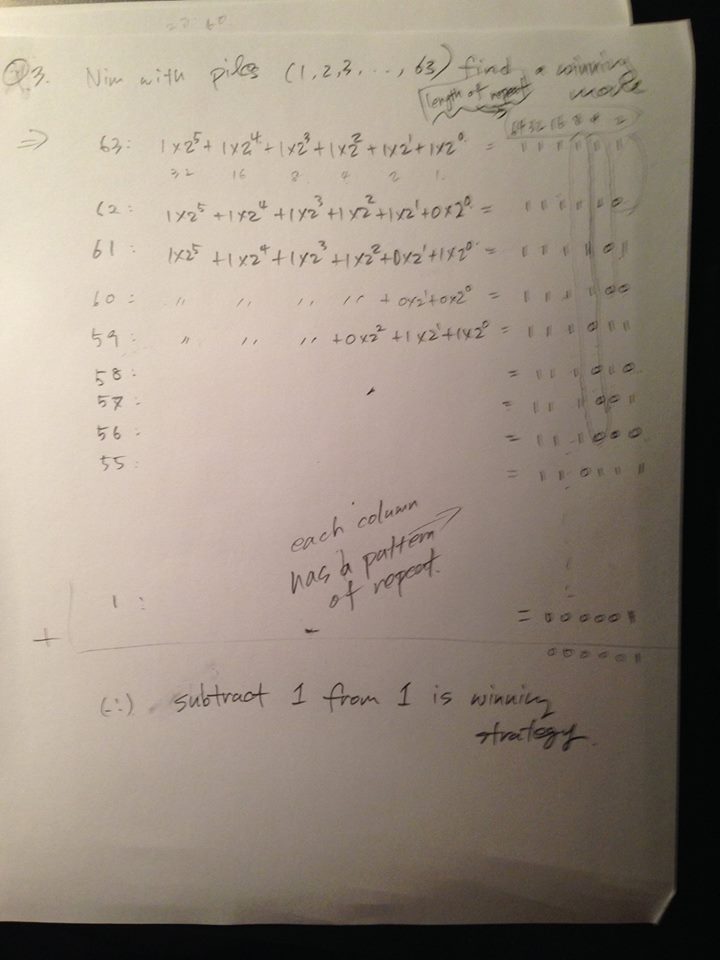 Q3. Nim with piles (1,2,3, ..., 63) find a winning move
length of repeat
64 32 16 8 4 2
⇒ 63: 1x2⁵ + 1x2⁴ + 1x2³ + 1x2² + 1x2¹ + 1x2⁰ = 1 1 1 1 1 1
32 16 8 4 2 1
62: 1x2⁵ + 1x2⁴ + 1x2³ + 1x2² + 1x2¹ + 0x2⁰ = 1 1 1 1 1 0
61: 1x2⁵ + 1x2⁴ + 1x2³ + 1x2² + 0x2¹ + 1x2⁰ = 1 1 1 1 0 1
60: " " " " + 0x2¹ + 0x2⁰ = 1 1 1 1 0 0
59: " " " + 0x2² + 1x2¹ + 1x2⁰ = 1 1 1 0 1 1
58: = 1 1 1 0 1 0
57: = 1 1 1 0 0 1
56: = 1 1 1 0 0 0
55: = 1 1 0 1 1 1
each column
has a pattern
of repeat.
1: = 0 0 0 0 0 1
+
0 0 0 0 0 1
(∴) subtract 1 from 1 is winning
strategy.